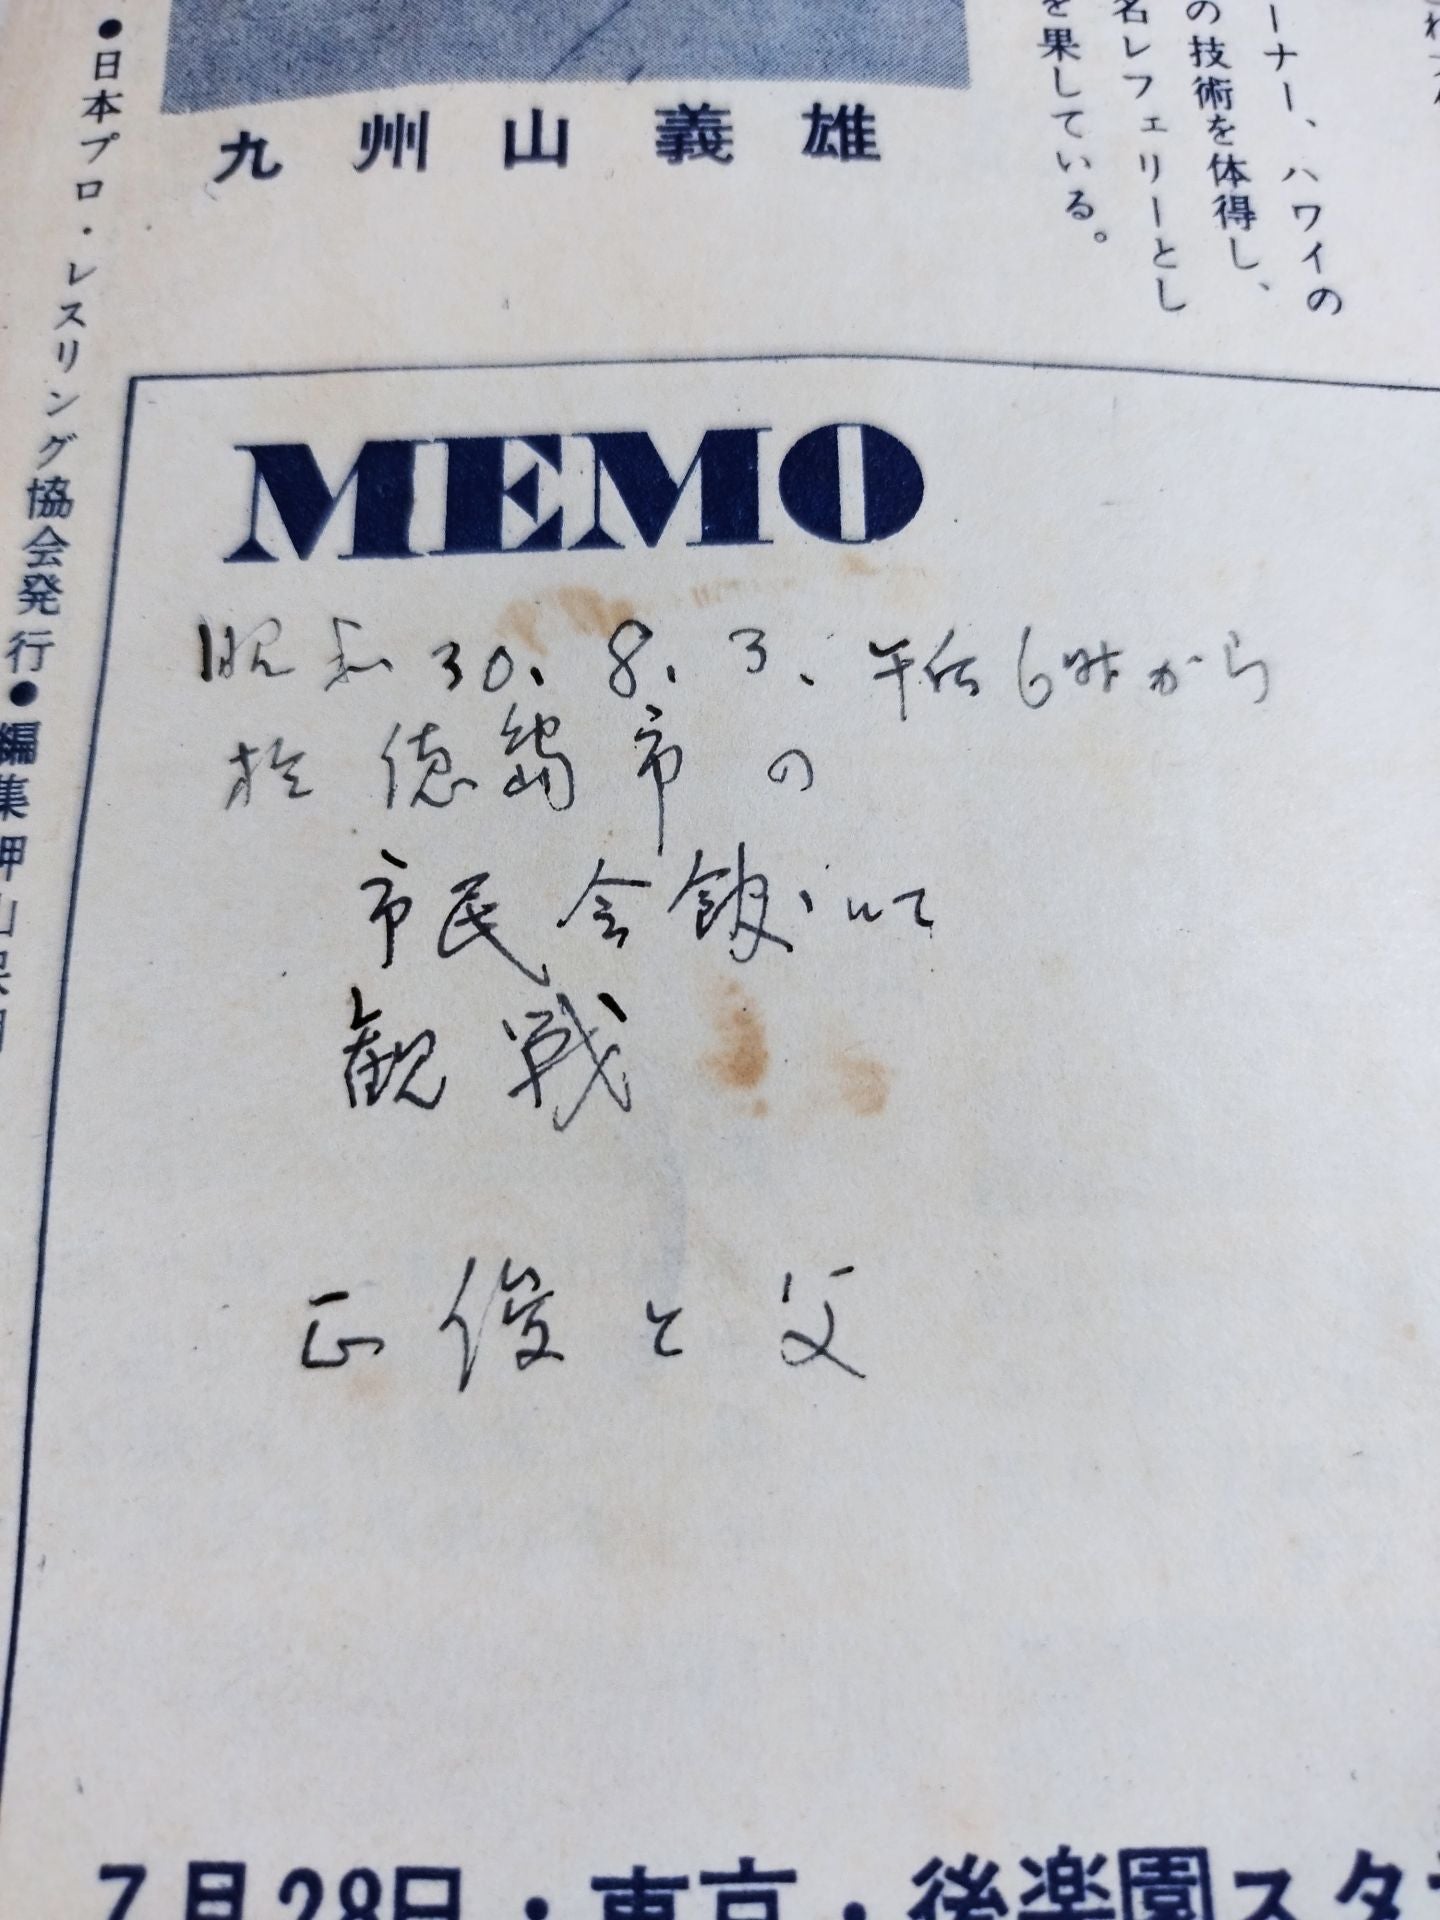 ーナー、ハワイの
の技術を体得し、
名レフェリーとし
を果している。
九州山義雄
●日本プロ・レスリング協会発行●編集押山保明
MEMO
昭和30.8.3.午后6時から
於徳島市の
市民会館にて
観戦
正俊と父
7月28日・東京・後楽園スタ